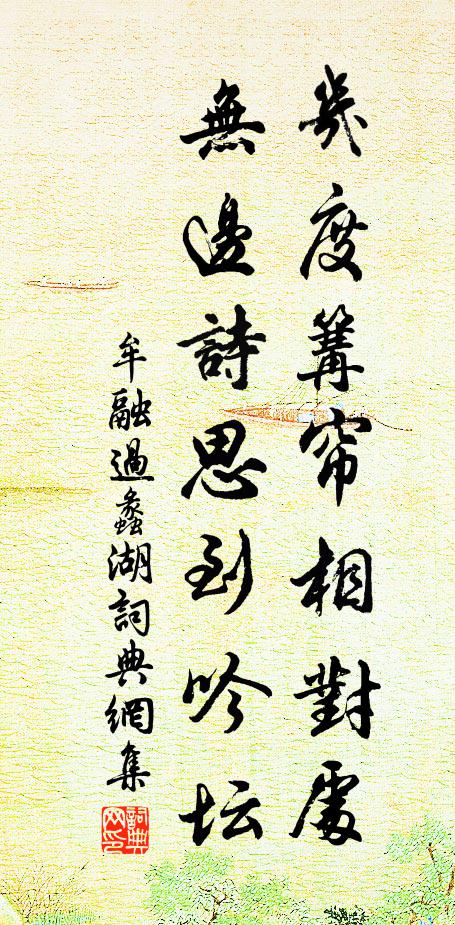 幾度篝帘相對處
無邊詩思到吟坛
牟融過蠡湖詞典網集
詞典网印